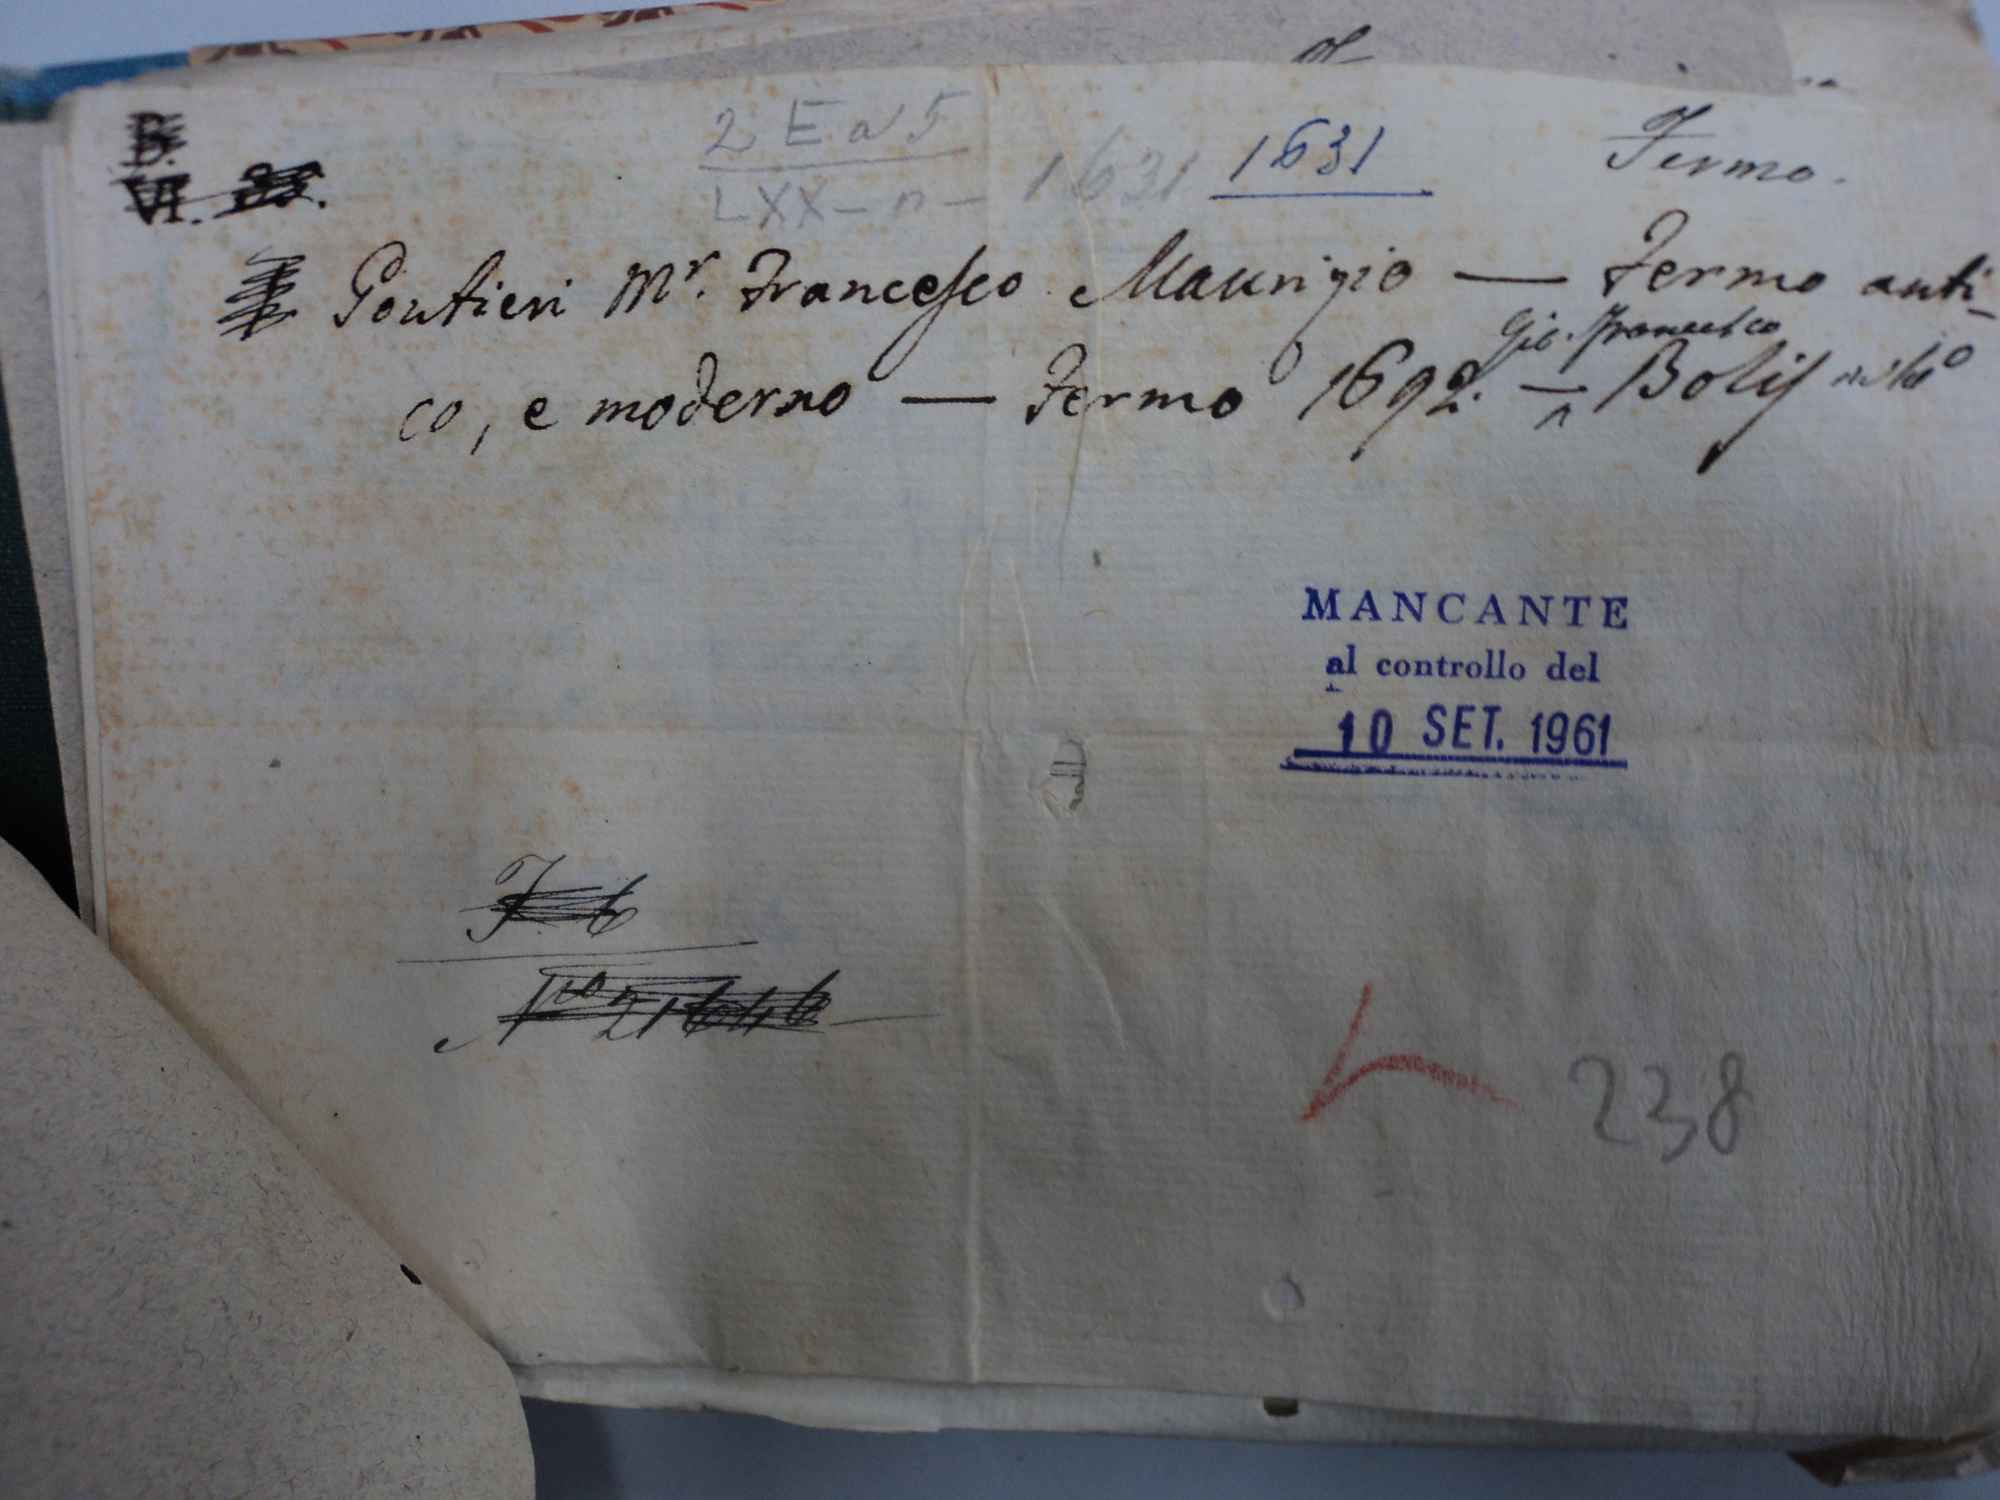 B.
VI. 
2 E a 5
LXX - n - 1631 1631
Fermo.
Pontieri Mr. Francesco Maurizio — Fermo anti-
Gio. Francesco
co, e moderno — Fermo 1692. — Bolis
MANCANTE
al controllo del
10 SET. 1961
F 6
No 21646
238